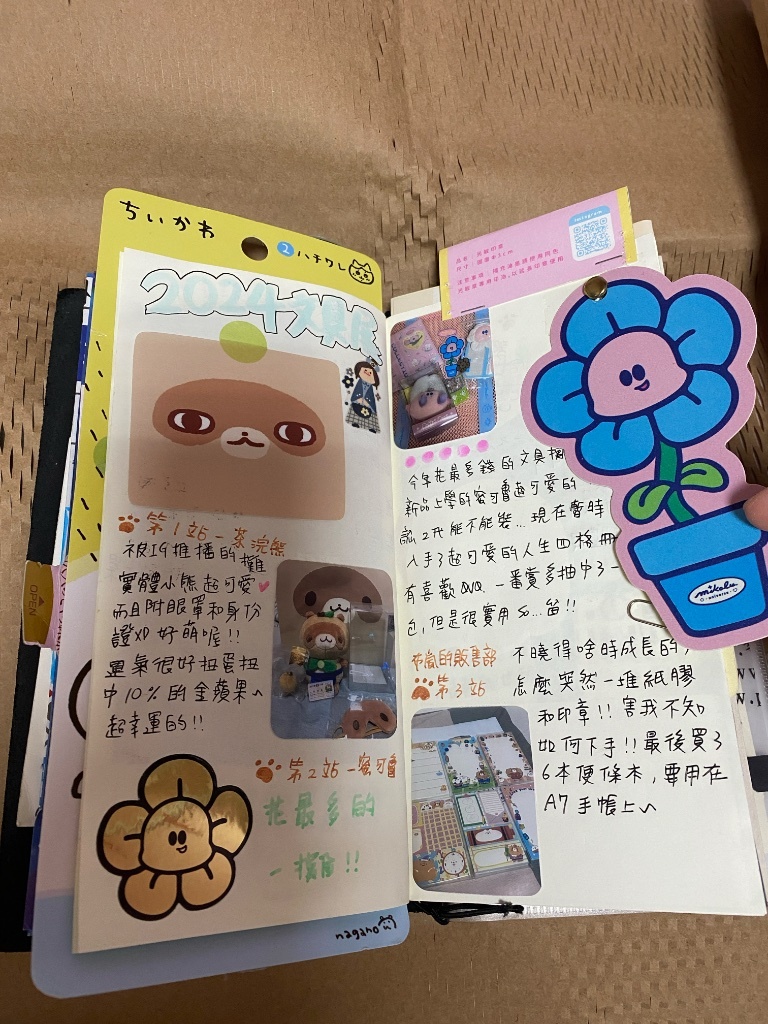 ちいかわ
2 ハチワレ
2024文具展
第1站-茶浣熊
被IG推播的攤
實體小熊超可愛
而且附眼罩和身份
證XD 好萌喔!!
運氣很好扭蛋扭
中10%的金蘋果~
超幸運的!!
第2站-蜜可魯
花最多的
一攤!!
nagano
OPEN
Instagram
今年花最多錢的文具攤
新品上學的蜜可魯超可愛的
入手了超可愛的人生四格冊
有喜歡QVQ. 一番賞多抽中了一
包,但是很實用 so...笛!!
的販售部
第3站
不曉得啥時成長的,
怎麼突然一堆紙膠
和印章!! 害我不知
如何下手!! 最後買了
6本便條本,要用在
A7手帳上~
mikolu
universe